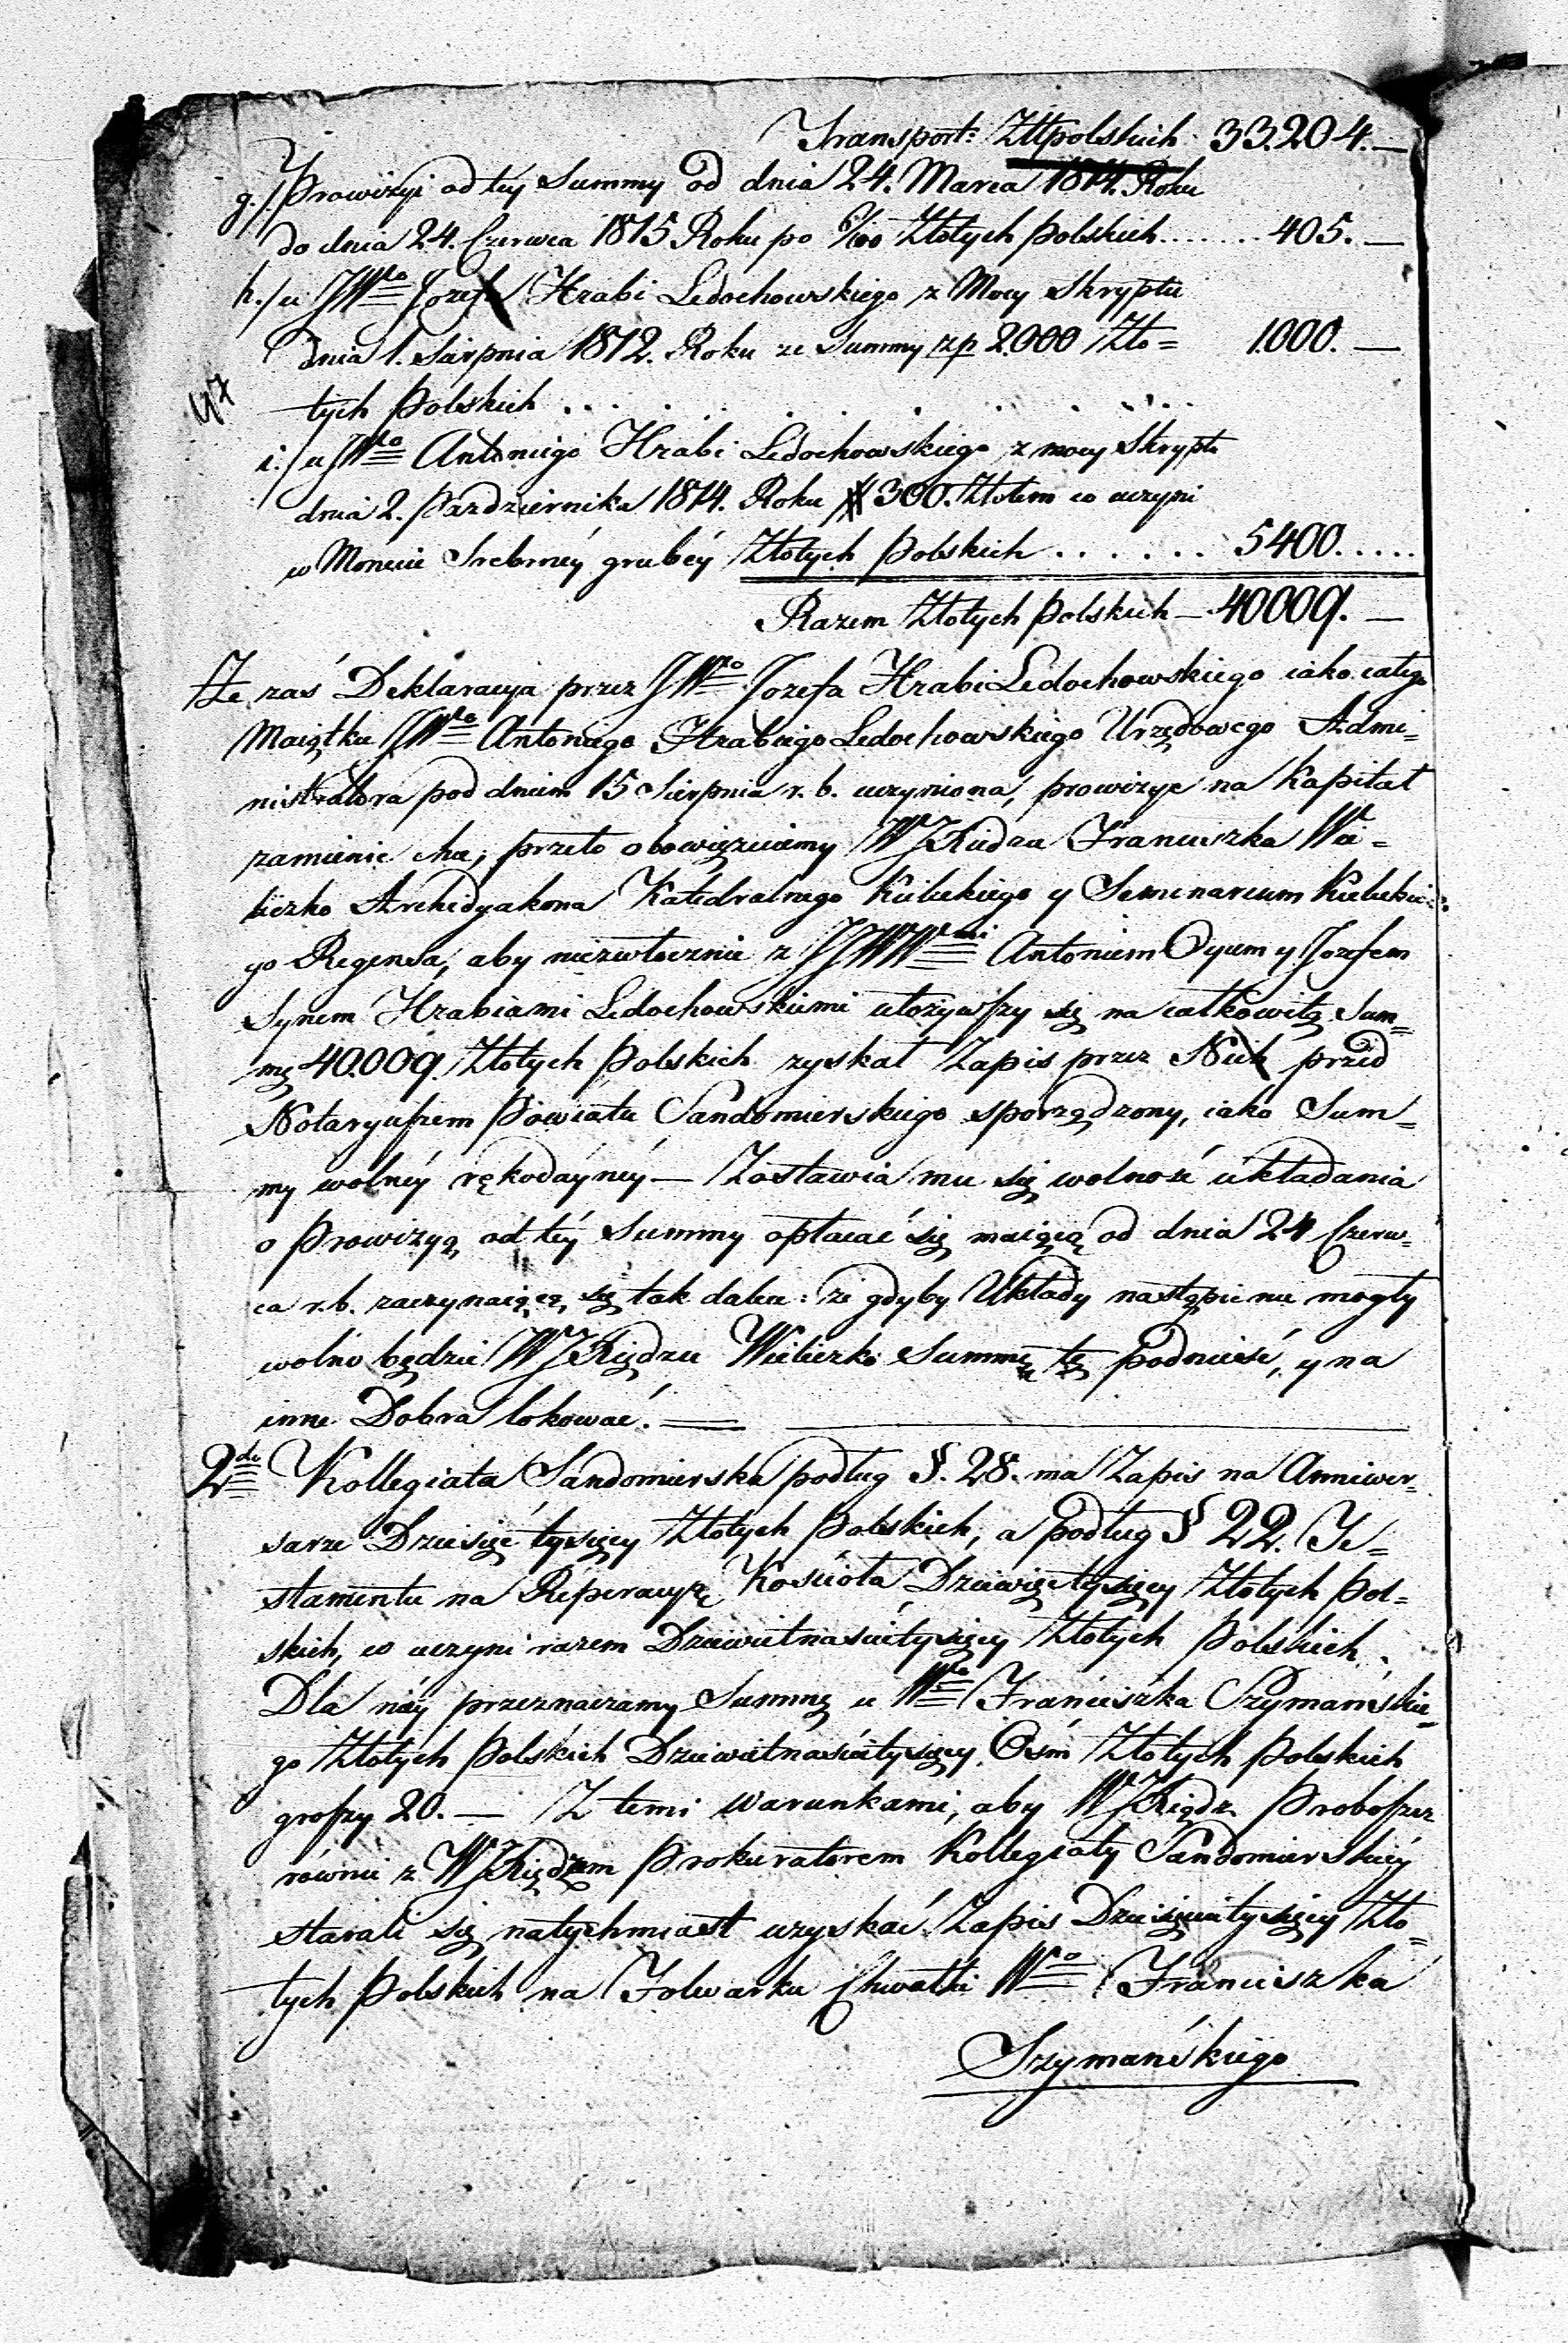 Transport: Złtpolskich 33.204.—
g./ Prowizyi od tey Summy od dnia 24. Marca 1814. Roku
do dnia 24. Czerwca 1815 Roku po 6/100 Złotych Polskich....... 405.—
h./ u JWgo Jozefa Hrabi Ledochowskiego z Mocy Skryptu
dnia 1. Sierpnia 1812. Roku ze Summy zp 2.000 Zło= 1000.—
tych Polskich . . . . . . . . . .
i./ u JWgo Antoniego Hrabi Ledochowskiego z mocy Skryptu
dnia 2. Pazdziernika 1814. Roku # 300. Złotem co uczyni
w Monecie Srebrnéy grubéy Złotych Polskich . . . . . . 5400.....
Razem Złotych Polskich — 40009.—
Ze zaś Deklaracya przez JWgo Jozefa Hrabi Ledochowskiego iako całego
Maiątku JWgo Antoniego Hrabiego Ledochowskiego Urzędowego Admi=
nistratora pod dniem 15 Sierpnia r. b. uczyniona, prowizye na Kapitał
zamienić chce; przeto obowięzuiemy WJXiędza Franciszka Wie=
liczko Archidyakona Katedralnego Kieleckiego y Seminarium Kieleckie=
go Regensa, aby niezwłocznie z JJWWmi Antoniem Oycem y Jozefem
Synem Hrabiami Ledochowskiemi ułożywszy się na całkowitą Sum=
mę 40.009. Złotych Polskich zyskał Zapis przez Nich przed
Notaryuszem Powiatu Sandomierskiego sporządzony, iako Sum=
my wolnéy rękodaynéy — Zostawia mu się wolność układania
o Prowizyą od téy Summy opłacać się maiącą od dnia 24 Czerw=
ca r. b. zaczynaiącą się tak daleu: że gdyby Układy nastąpić nie mogły
wolno będzie WJXiędzu Wieliczko Summę tę podnieść, y na
inne Dobra lokować. ——
2do Kollegiata Sandomierska podług §. 28. ma Zapis na Anniwer=
sarze Dziesięć tysięcy Złotych Polskich, a podług § 22. Te=
stamentu na Reperacyą Kościoła Dziewięć tysięcy Złotych Pol=
skich, co uczyni razem Dziewietnaście tysięcy Złotych Polskich.
Dla niéy przeznaczamy Summę u Wgo Franciszka Szymańskie=
go Złotych Polskich Dziewietnaście tysięcy Ośm Złotych Polskich
groszy 20. — Z temi warunkami, aby WJXiądz Proboszcz
równie z WJXiędzem Prokuratorem Kollegiaty Sandomierskiéy
starali się natychmiast uzyskać Zapis Dziesięciu tysięcy Zło=
tych Polskich na Folwarku Chwałki Wgo Franciszka
Szymańskiego